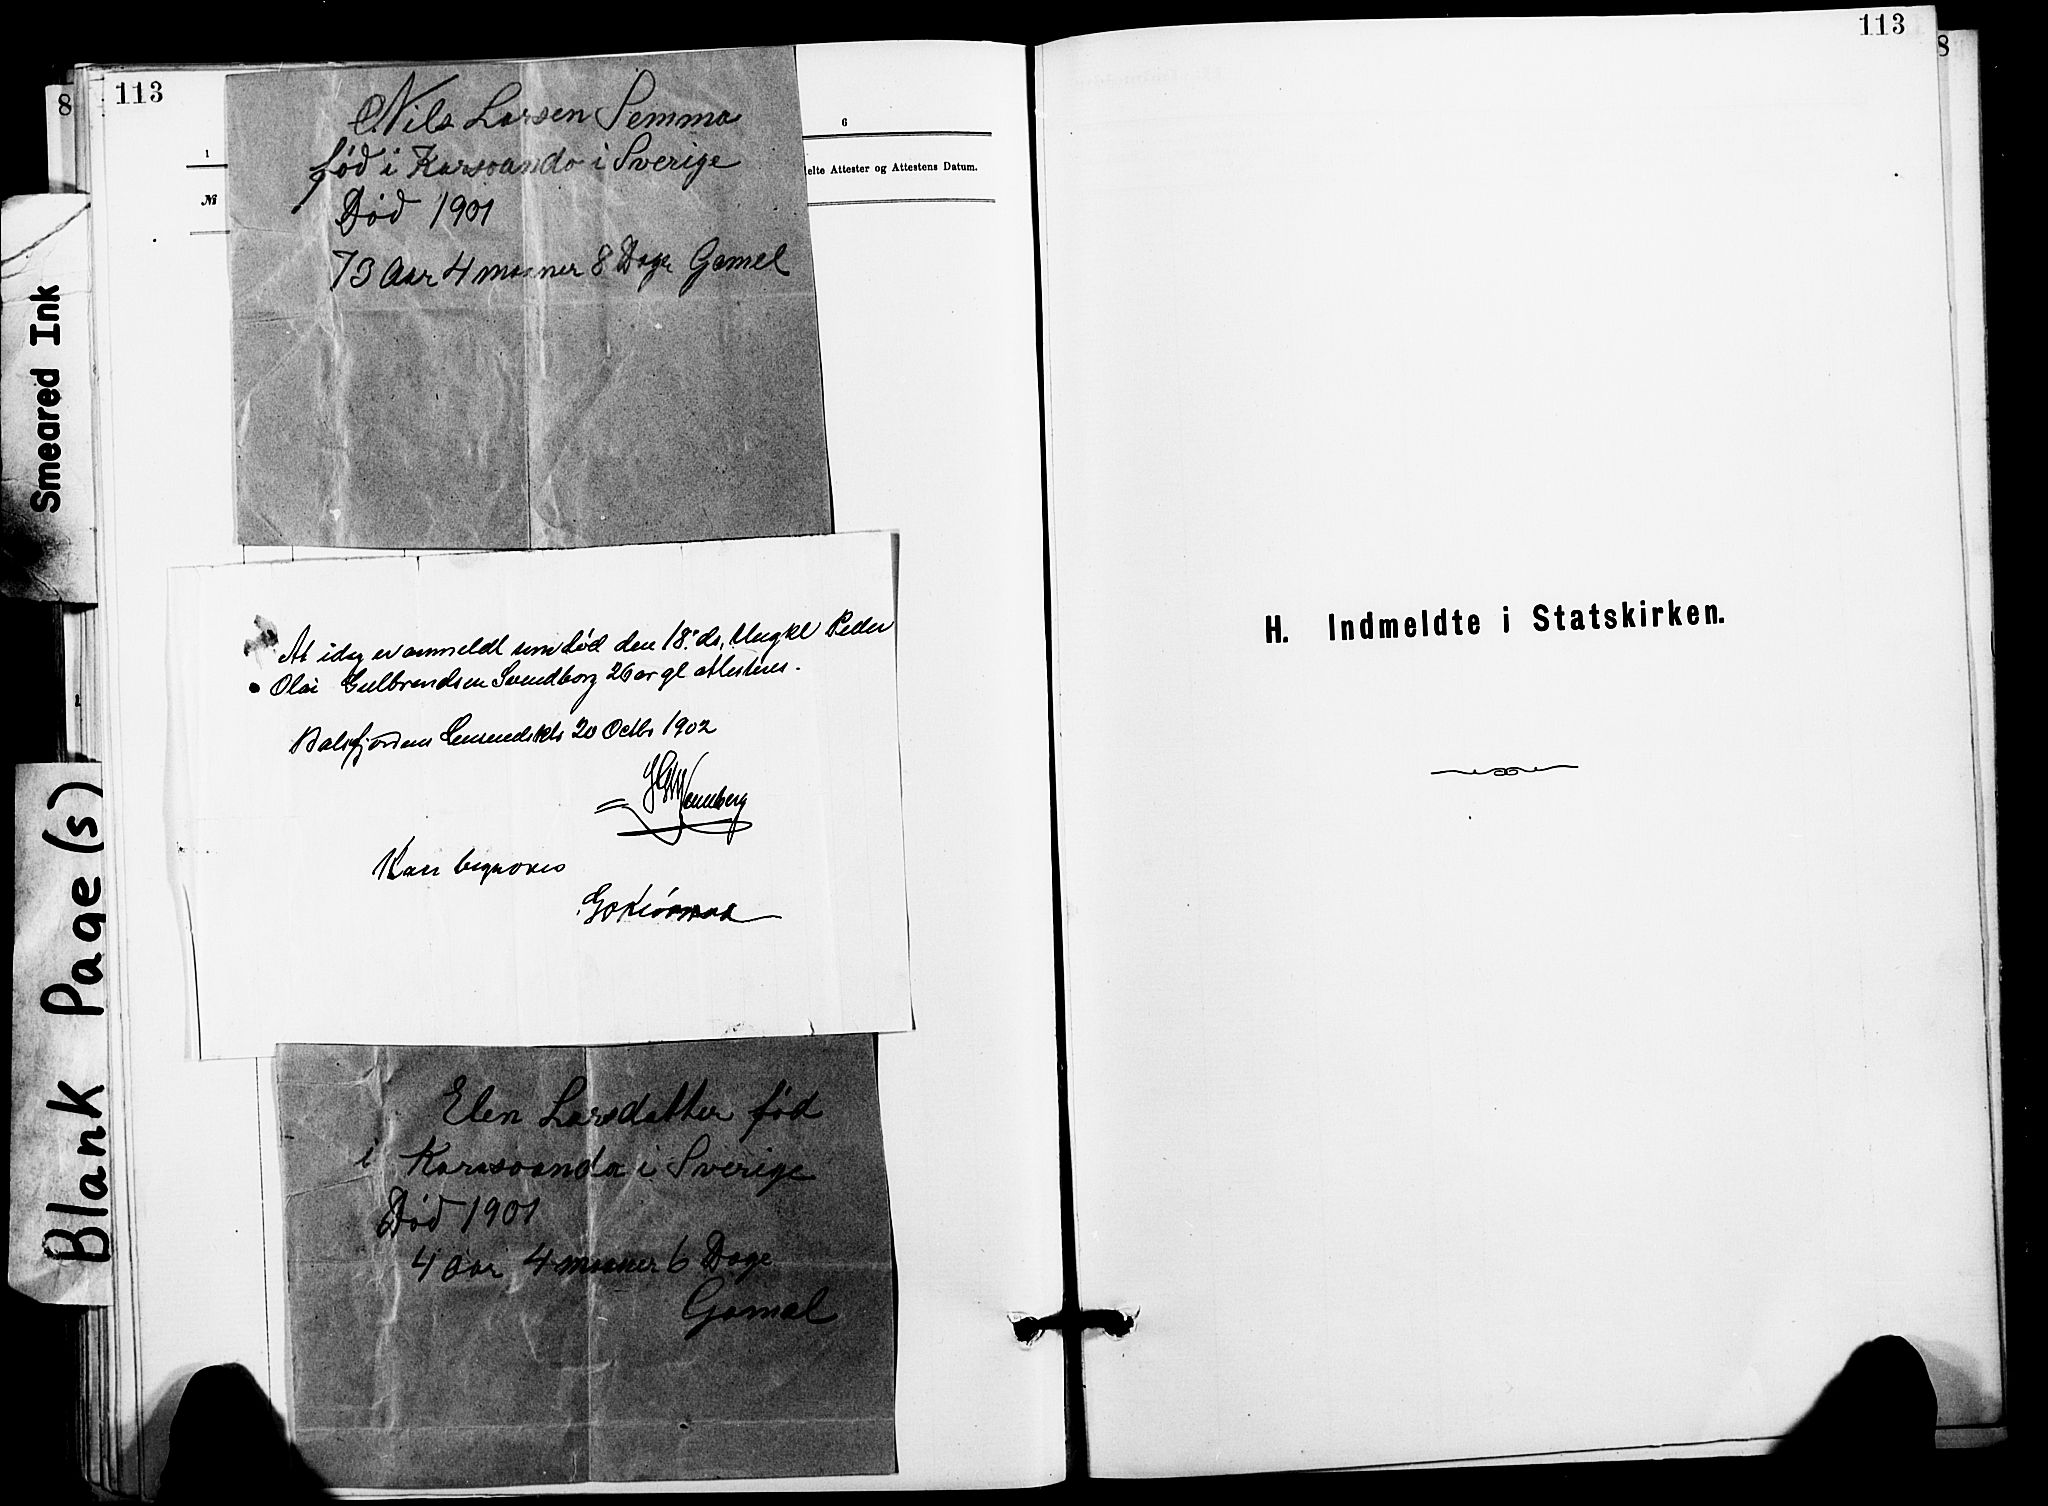 113
8
6
1
delte Attester og Attestens Datum.
№
Nils Larsen Semma
fød i Karsoando i Sverige
Død 1901
73 Aar 4 maaner 8 Dage Gamel
Smeared Ink
At idag er anmeldt som død den 18de ds, Ungkl Peder
Olai Gulbrandsen Svendborg 26 år gl attesteres.
Balsfjordens Lensmdskt 20 Octbr 1902
Kan begraves
Blank Page(s)
Elen Larsdatter fød
i Karesoanda i Sverige
Død 1901
4 aar 4 maaner 6 Dage
Gamel
113
8
H. Indmeldte i Statskirken.